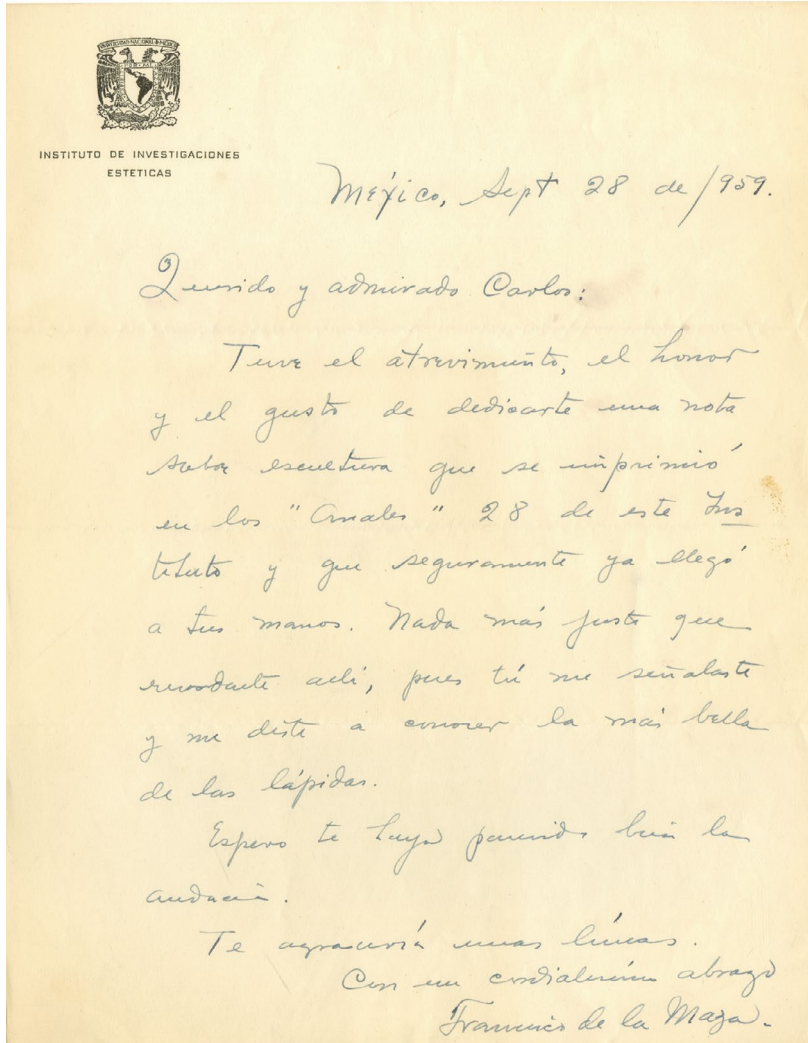 UNIVERSIDAD NACIONAL DE MEXICO
INSTITUTO DE INVESTIGACIONES
ESTETICAS
México, Sept 28 de /959.
Querido y admirado Carlos:
Tuve el atrevimiento, el honor
y el gusto de dedicarte una nota
sobre escultura que se imprimió
en los "Anales" 28 de este Ins
tituto y que seguramente ya llegó
a tus manos. Nada más justo que
recordarte allí, pues tú me señalaste
y me diste a conocer la más bella
de las lápidas.
Espero te haya parecido bien la
audacia.
Te agracería unas líneas.
Con un cordialísimo abrazo
Francisco de la Maza.